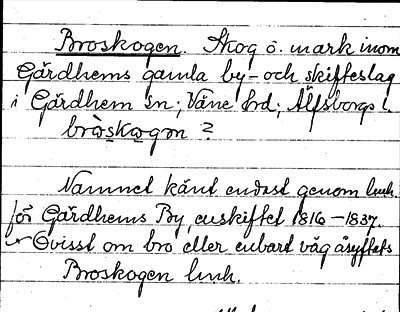 Broskogen. Skog o. mark inom
Gärdhems gamla by- och skifteslag
i Gärdhem sn; Väne hd; Älfsborgs l.
bròskògən ?
Namnet känt endast genom lmh.
för Gärdhems By, enskiftet 1816–1837.
Ovisst om bro eller enbart väg åsyftats
Broskogen lmh.